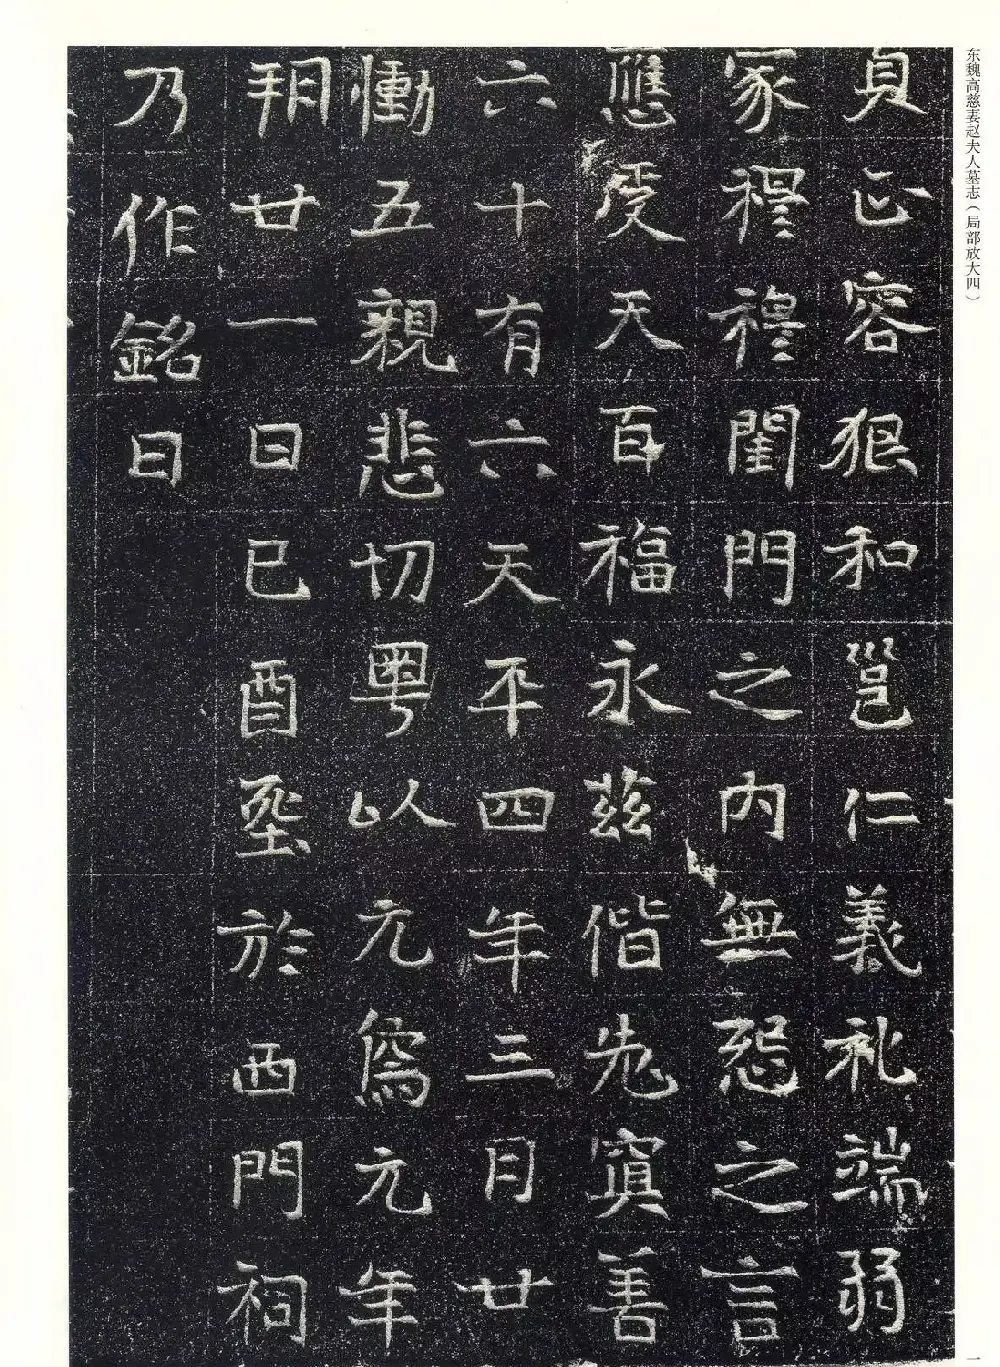 东魏高慈妻赵夫人墓志（局部放大四）
貞正容狠和邕仁義礼端弱
家穆穆閨門之內無怨之言
應受天百福永兹偕老寘善
六十有六天平四年三月廿
慟五親悲切粤以元為元年
朔廿一日己酉堲於西門祠
乃作銘曰
一